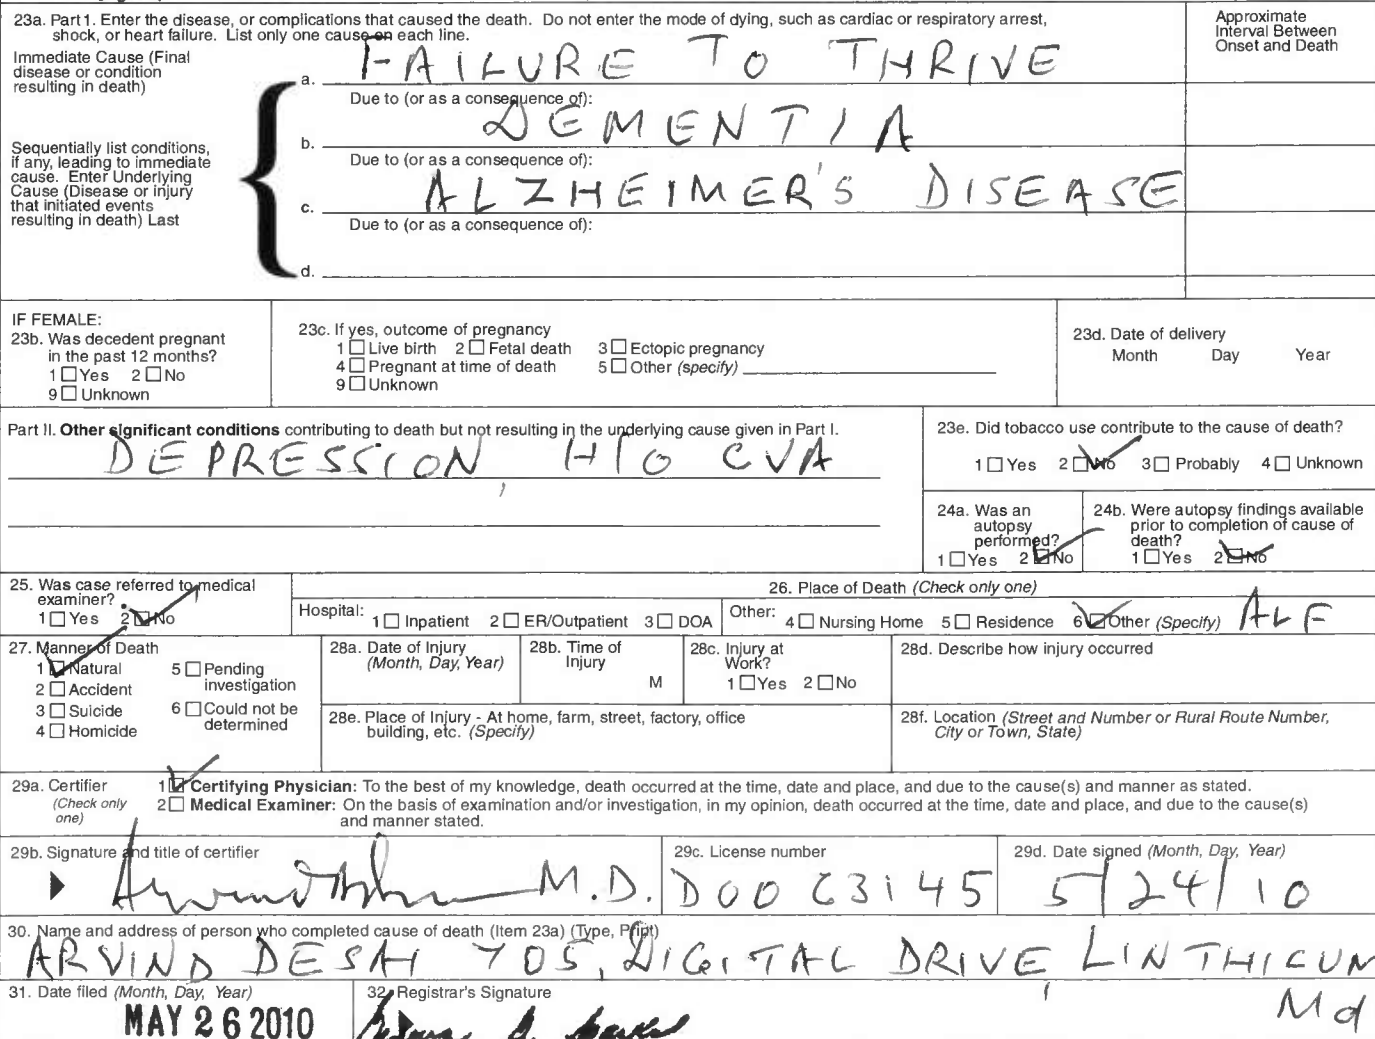 23a. Part 1. Enter the disease, or complications that caused the death. Do not enter the mode of dying, such as cardiac or respiratory arrest,
shock, or heart failure. List only one cause on each line.
Approximate
Interval Between
Onset and Death
Immediate Cause (Final
disease or condition
resulting in death)
a. FAILURE TO THRIVE
Due to (or as a consequence of):
b. DEMENTIA
Sequentially list conditions,
if any, leading to immediate
cause. Enter Underlying
Cause (Disease or injury
that initiated events
resulting in death) Last
Due to (or as a consequence of):
c. ALZHEIMER'S DISEASE
Due to (or as a consequence of):
d.
IF FEMALE:
23b. Was decedent pregnant
in the past 12 months?
1 ☐ Yes 2 ☐ No
9 ☐ Unknown
23c. If yes, outcome of pregnancy
1 ☐ Live birth 2 ☐ Fetal death 3 ☐ Ectopic pregnancy
4 ☐ Pregnant at time of death 5 ☐ Other (specify)
9 ☐ Unknown
23d. Date of delivery
Month Day Year
Part II. Other significant conditions contributing to death but not resulting in the underlying cause given in Part I.
DEPRESSION, H/O CVA
23e. Did tobacco use contribute to the cause of death?
1 ☐ Yes 2 ☑ No 3 ☐ Probably 4 ☐ Unknown
24a. Was an
autopsy
performed?
1 ☐ Yes 2 ☑ No
24b. Were autopsy findings available
prior to completion of cause of
death?
1 ☐ Yes 2 ☑ No
25. Was case referred to medical
examiner?
1 ☐ Yes 2 ☑ No
26. Place of Death (Check only one)
Hospital: 1 ☐ Inpatient 2 ☐ ER/Outpatient 3 ☐ DOA
Other: 4 ☐ Nursing Home 5 ☐ Residence 6 ☑ Other (Specify) ALF
27. Manner of Death
1 ☑ Natural 5 ☐ Pending
investigation
2 ☐ Accident
3 ☐ Suicide 6 ☐ Could not be
determined
4 ☐ Homicide
28a. Date of Injury
(Month, Day, Year)
28b. Time of
Injury
M
28c. Injury at
Work?
1 ☐ Yes 2 ☐ No
28d. Describe how injury occurred
28e. Place of Injury - At home, farm, street, factory, office
building, etc. (Specify)
28f. Location (Street and Number or Rural Route Number,
City or Town, State)
29a. Certifier
(Check only
one)
1 ☑ Certifying Physician: To the best of my knowledge, death occurred at the time, date and place, and due to the cause(s) and manner as stated.
2 ☐ Medical Examiner: On the basis of examination and/or investigation, in my opinion, death occurred at the time, date and place, and due to the cause(s)
and manner stated.
29b. Signature and title of certifier
M.D.
29c. License number
D0063145
29d. Date signed (Month, Day, Year)
5/24/10
30. Name and address of person who completed cause of death (Item 23a) (Type, Print)
ARVIND DESAI 705, DIGITAL DRIVE, LINTHICUM
Md
31. Date filed (Month, Day, Year)
MAY 26 2010
32. Registrar's Signature